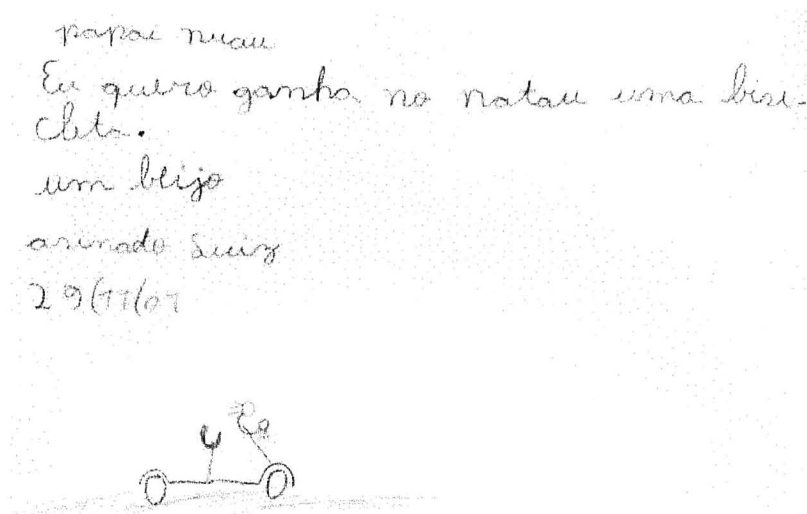 papai nuau
Eu quero ganha no natau uma bisi-
cleta.
um beijo
asinado Luiz
29/11/01